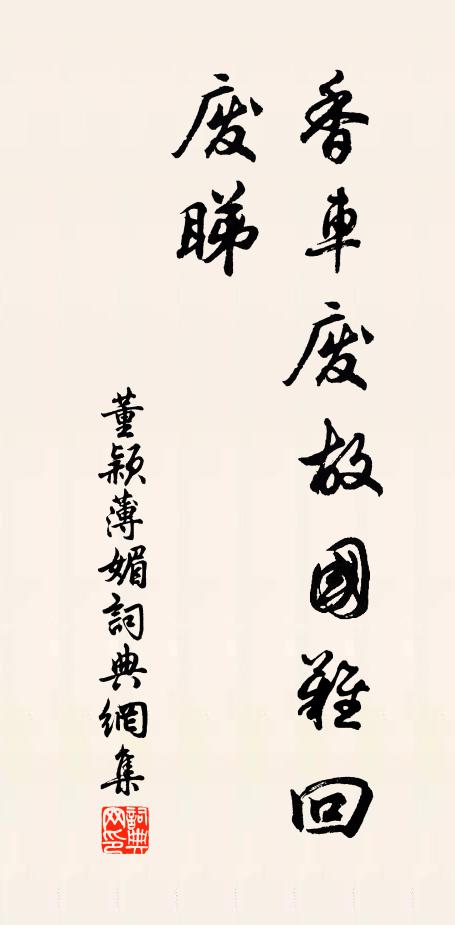 香車废故國難回
废睇
董颖薄媚詞典網集
詞典網印